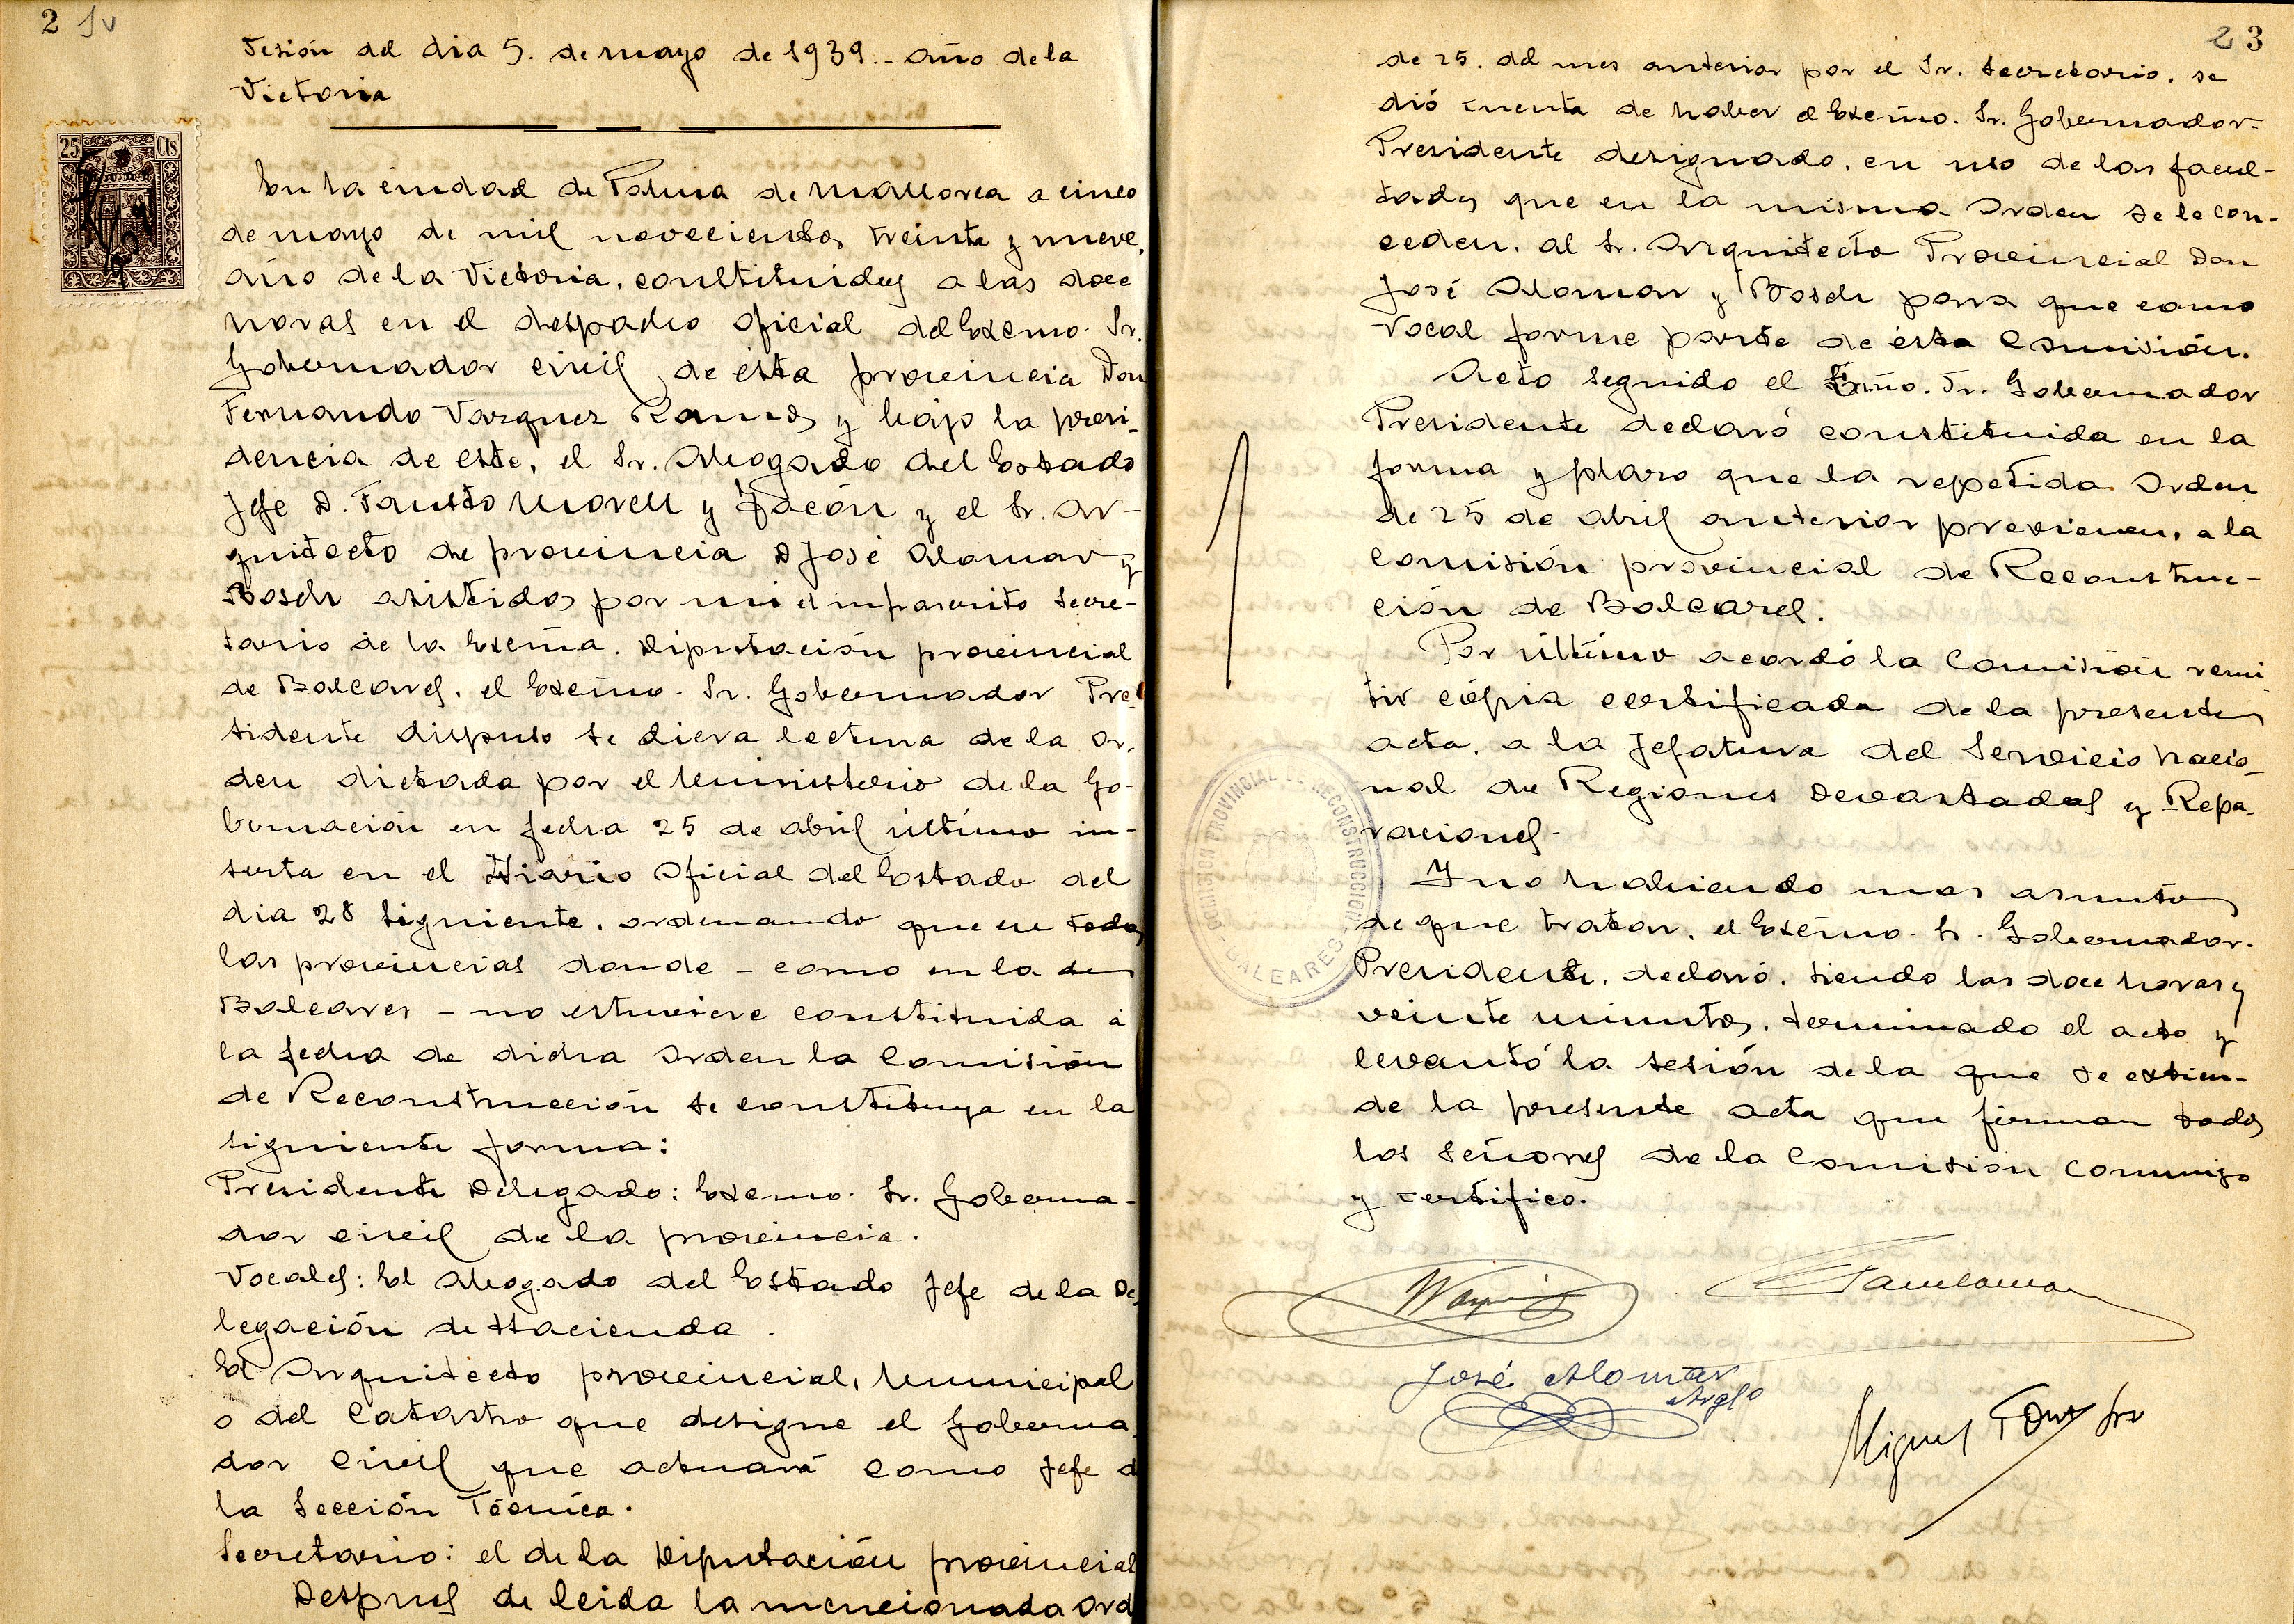 2
Sesión del dia 5. de mayo de 1939.- Año de la
Victoria
25 Cts
En la ciudad de Palma de Mallorca a cinco
de mayo de mil novecientos treinta y nueve,
año de la Victoria, constituidos a las doce
horas en el despacho oficial del Excmo. Sr.
Gobernador civil de ésta provincia Don
Fernando Vazquez Ramos y bajo la presi-
dencia de este, el Sr. Abogado del Estado
Jefe D. Fausto Morell y Tacón y el Sr. Ar-
quitecto de provincia D José Alomar y
Bosch asistidos por mi el infrascrito Secre-
tario de la Excma. Diputación provincial
de Baleares, el Excmo. Sr. Gobernador Pre-
sidente dispuso se diera lectura de la Or-
den dictada por el Ministerio de la Go-
bernación en fecha 25 de abril último in-
serta en el Diario Oficial del Estado del
dia 28 siguiente, ordenando que en todas
las provincias donde - como en la de
Baleares - no estuviere constituida á
la fecha de dicha Orden la Comisión
de Reconstrucción se constituya en la
siguiente forma:
Presidente Delegado: Excmo. Sr. Goberna-
dor civil de la provincia.
Vocales: El Abogado del Estado Jefe de la De-
legación de Hacienda.
El Arquitecto provincial, Municipal
o del Catastro que designe el Goberna-
dor Civil que actuará como Jefe d
la Sección Técnica.
Secretario: el de la Diputación provincial
Despues de leida la mencionada Ord
23
de 25. del mes anterior por el Sr. Secretario, se
dió cuenta de haber el Excmo. Sr. Gobernador-
Presidente designado, en uso de las facul-
tades que en la misma Orden se le con-
ceden, al Sr. Arquitecto Provincial Don
José Alomar y Bosch para que como
Vocal forme parte de ésta Comisión.
Acto seguido el Exmo. Sr. Gobernador
Presidente declaró constituida en la
forma y plazo que la repetida Orden
de 25 de abril anterior previenen, a la
Comisión provincial de Reconstruc-
ción de Baleares.
Por último acordó la Comisión remi-
tir cópia certificada de la presente
acta, a la Jefatura del Servicio Nacio-
nal de Regiones Devastadas y Repa-
raciones.
COMISION PROVINCIAL DE RECONSTRUCCION - BALEARES -
Y no habiendo mas asuntos
de que tratar, el Excmo. Sr. Gobernador-
Presidente, declaró, siendo las doce horas y
veinte minutos, terminado el acto y
levantó la sesión de la que se extien-
de la presente acta que firman todos
los Señores de la Comisión conmigo
y certifico.
José Alomar
Arqto
Miguel Font